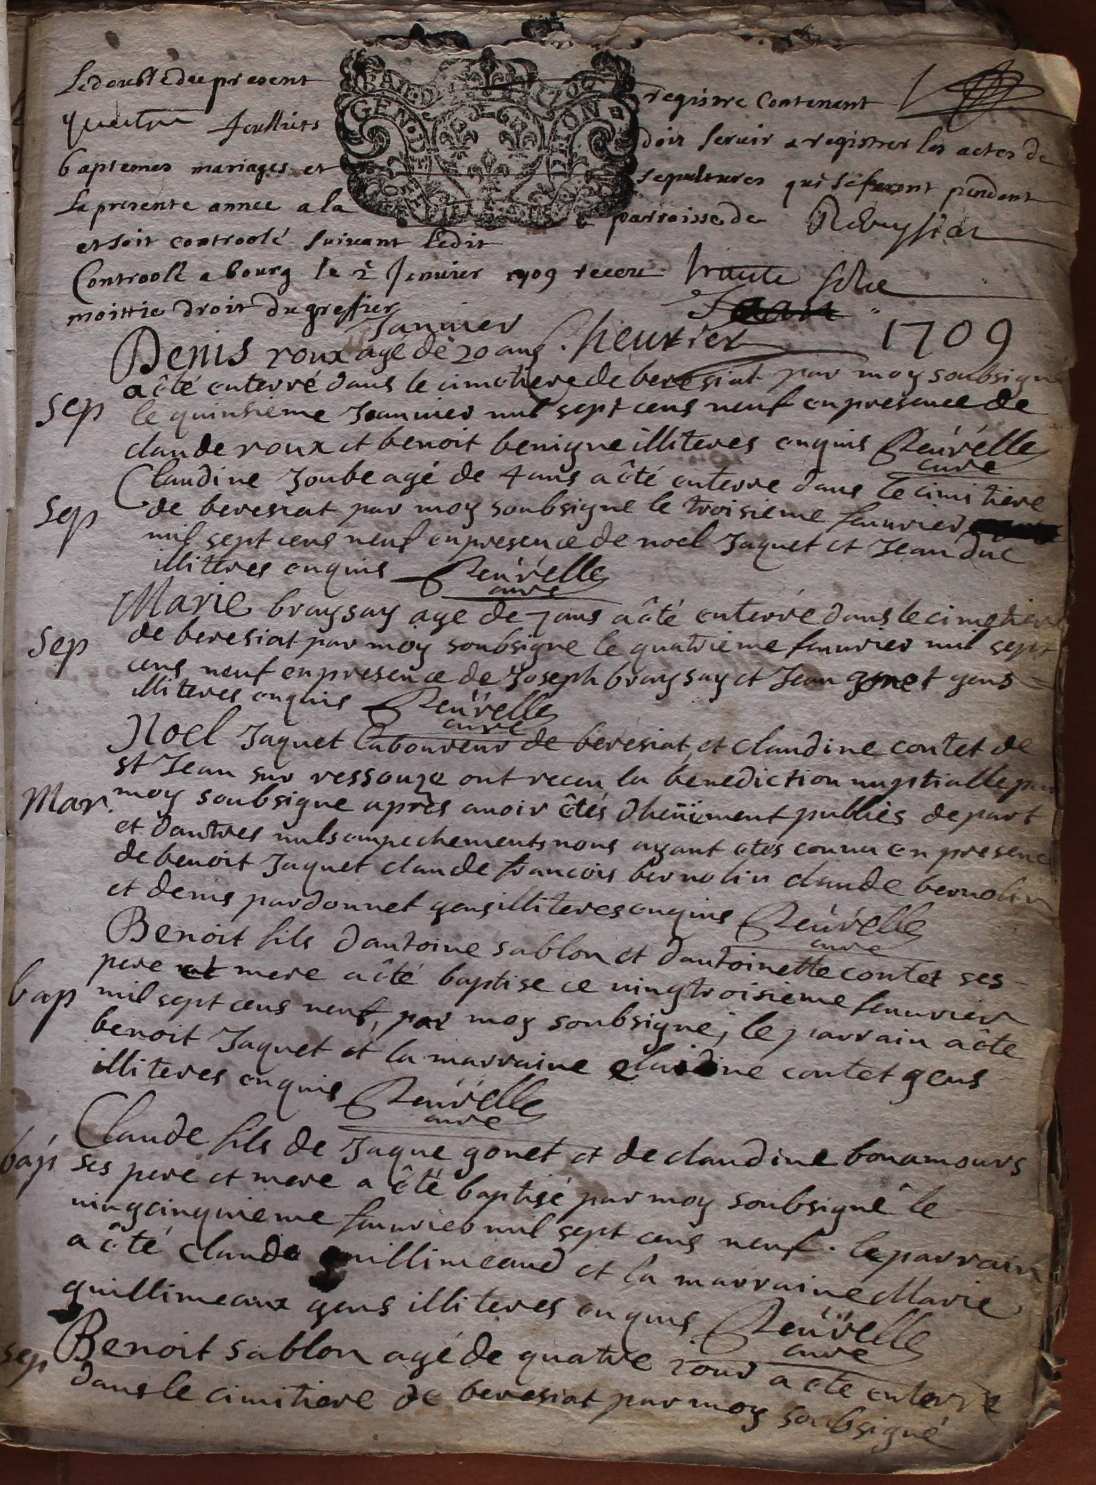 Le double du present registre Contenant
quatre feullets doit servir a registrer les actes de
baptemes mariages et sepultures qui se feront pendent
La presente annee a la parroisse de
et soit controolé suivant Ledit
GEN. DE DIION
Controollé a bourg le 2 Jenvier 1709 receu trante solz
moittie droit du greffier
Janvier Cheurier 1709
Denis roux age de 20 ans
a ôté enterré dans le cimetiere de beresiat par moy soubsigne
sep le quinsieme Jeanvier mil sept cens neuf en presence de
claude roux et benoit benigne illiteres enquis Reuvelle
cure
Claudine Joube agé de 4 ans a ôté enterre dans le cimitiere
sep de beresiat par moy soubsigne le troisieme feuvrier
mil sept cens neuf en presence de noel Jaquet et Jean duc
illitteres enquis Reuvelle
cure
Marie braysay age de 7 ans a ôté enterré dans le cimetiere
sep de beresiat par moy soubsigne le quatrieme feuvrier mil sept
cens neuf en presence de Joseph braysay et Jean gonet gens
illiteres enquis Reuvelle
cure
Noel Jaquet laboureur de beresiat et claudine contet de
st Jean sur ressouze ont receu la benediction nuptialle par
Mar. moy soubsigne apres avoir ôtés dheüment publiés de part
et dautres nuls empechements nous ayant otes connu en presence
de benoit Jaquet claude francois bernolin claude bernolin
et denis pardonnet gens illiteres enquis Reuvelle
cure
Benoit fils dantoine sablon et dantoinette contet ses
pere et mere a ôté baptise ce vingtroisieme feuvrier
bap mil sept cens neuf, par moy soubsigne; le parrain a ôte
benoit Jaquet et la marraine claudine contet gens
illiteres enquis Reuvelle
cure
Claude fils de Jaque gonet et de claudine bonamours
bap ses pere et mere a ôté baptisé par moy soubsigné le
vingcinquieme feuvrier mil sept cens neuf. le parrain
a ôté claude guillimeaud et la marraine Marie
guillimeaux gens illiteres enquis Reuvelle
cure
sep Benoit sablon agé de quatre jour a ote enterre
dans le cimitiere de beresiat par moy soubsigné